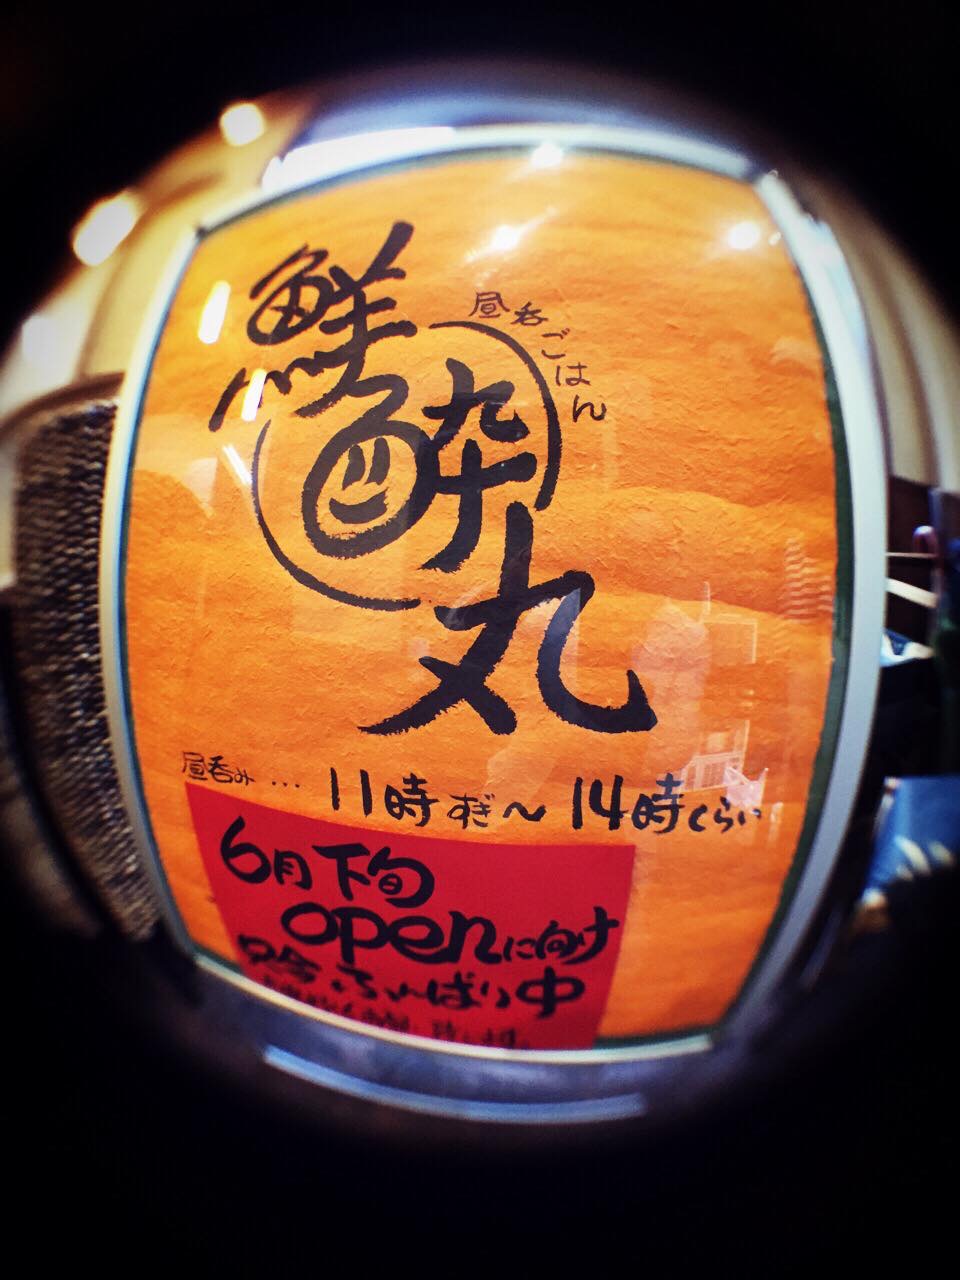 昼呑ごはん
鮮酔丸
昼呑み… 11時すぎ〜14時くらい
6月下旬
openに向け
ふんばり中